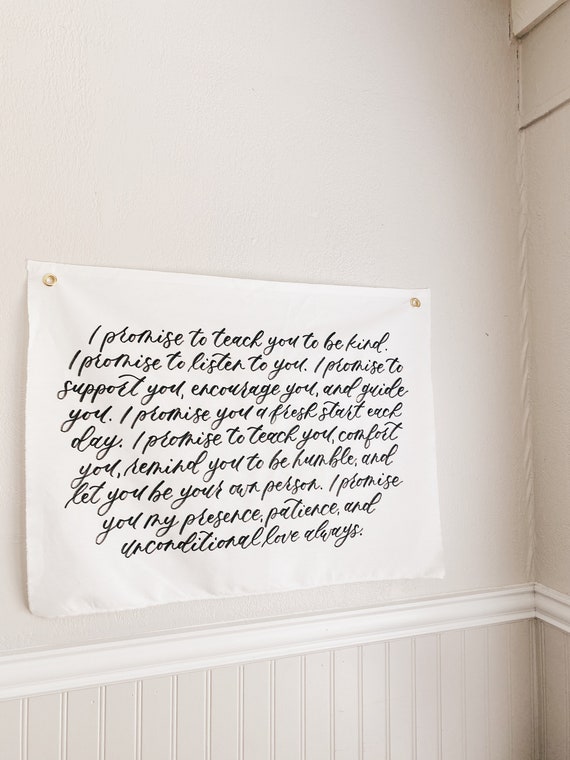 I promise to teach you to be kind.
I promise to listen to you. I promise to
support you, encourage you, and guide
you. I promise you a fresh start each
day. I promise to teach you, comfort
you, remind you to be humble, and
let you be your own person. I promise
you my presence, patience, and
unconditional love always.